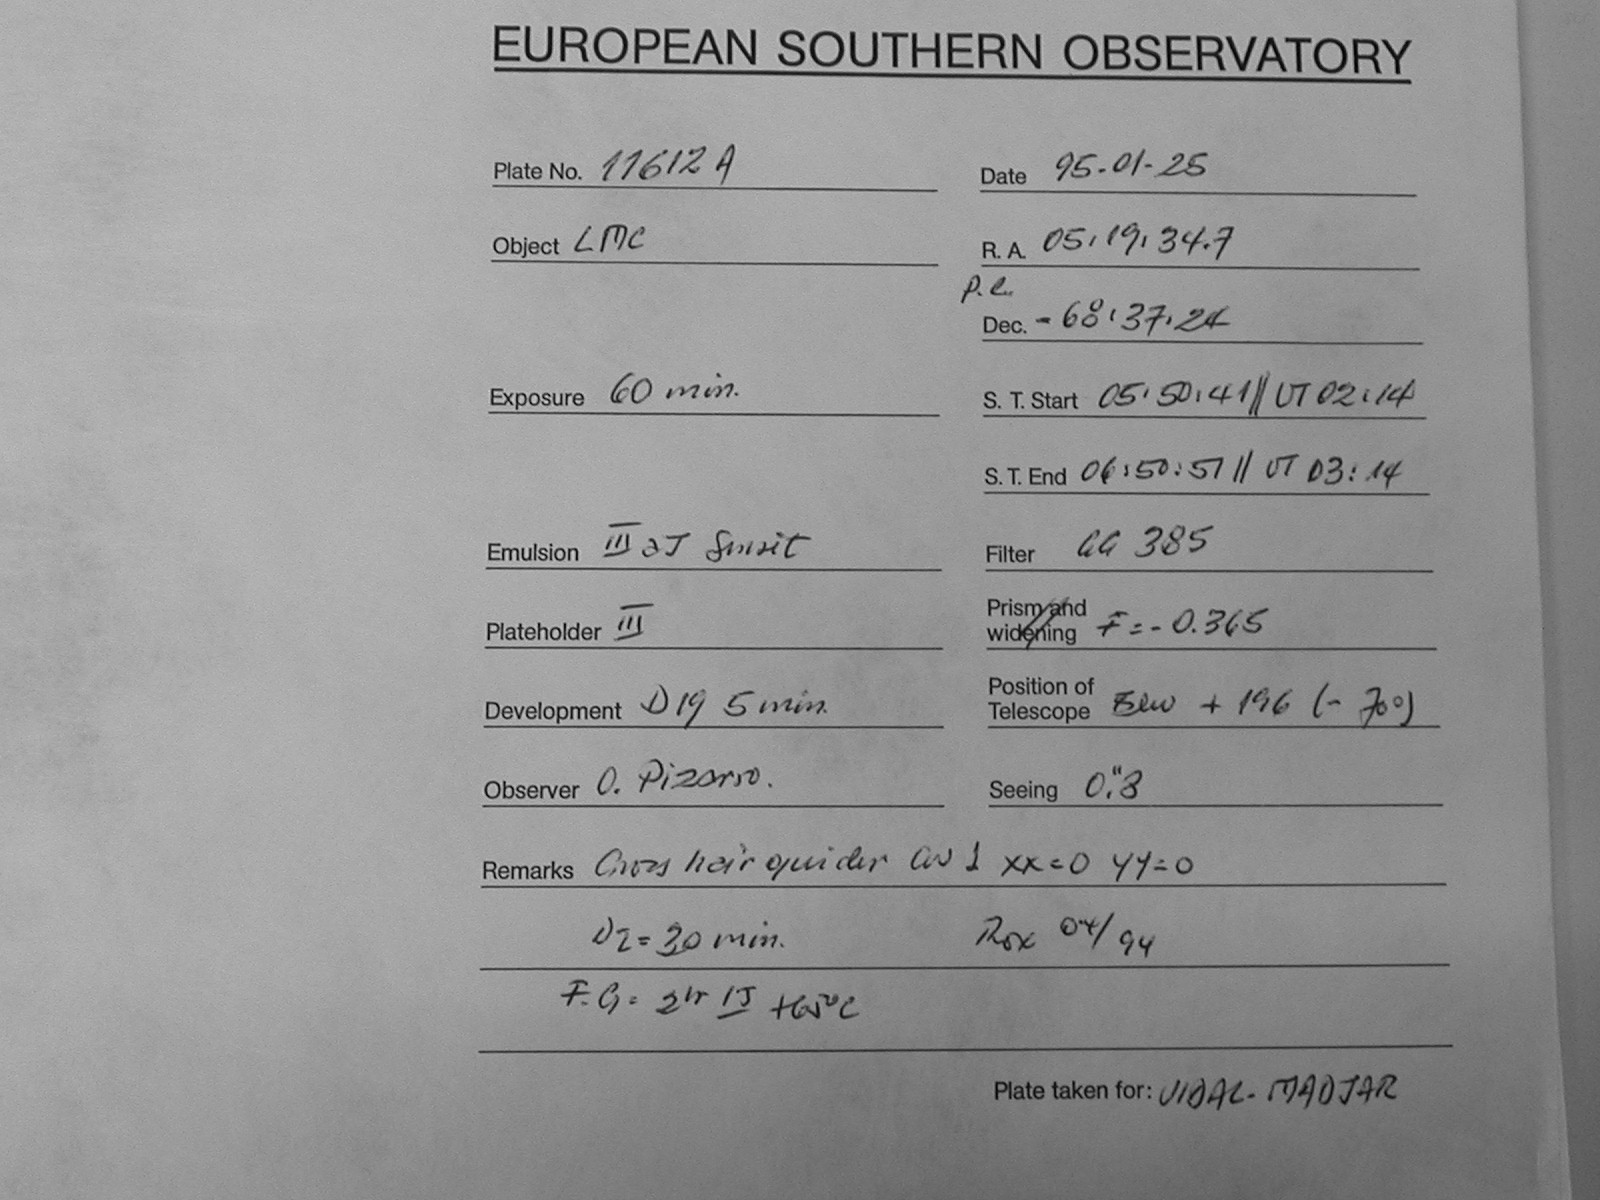 EUROPEAN SOUTHERN OBSERVATORY
Plate No. 11612 A
Date 95-01-25
Object LMC
R. A. 05:19:34.7
p.e.
Dec. -68:37:24
Exposure 60 min.
S. T. Start 05:50:41 // UT 02:14
S. T. End 06:50:51 // UT 03:14
Emulsion III aJ
Filter GG 385
Plateholder III
Prism and widening F = - 0.365
Development D19 5 min.
Position of Telescope + 196 (- 70°)
Observer O. Pizarro.
Seeing 0."8
Remarks Cross hair guider GW 1 xx=0 yy=0
= 30 min. Box 04/94
F.G = 2hr +65°C
Plate taken for: VIDAL-MADJAR